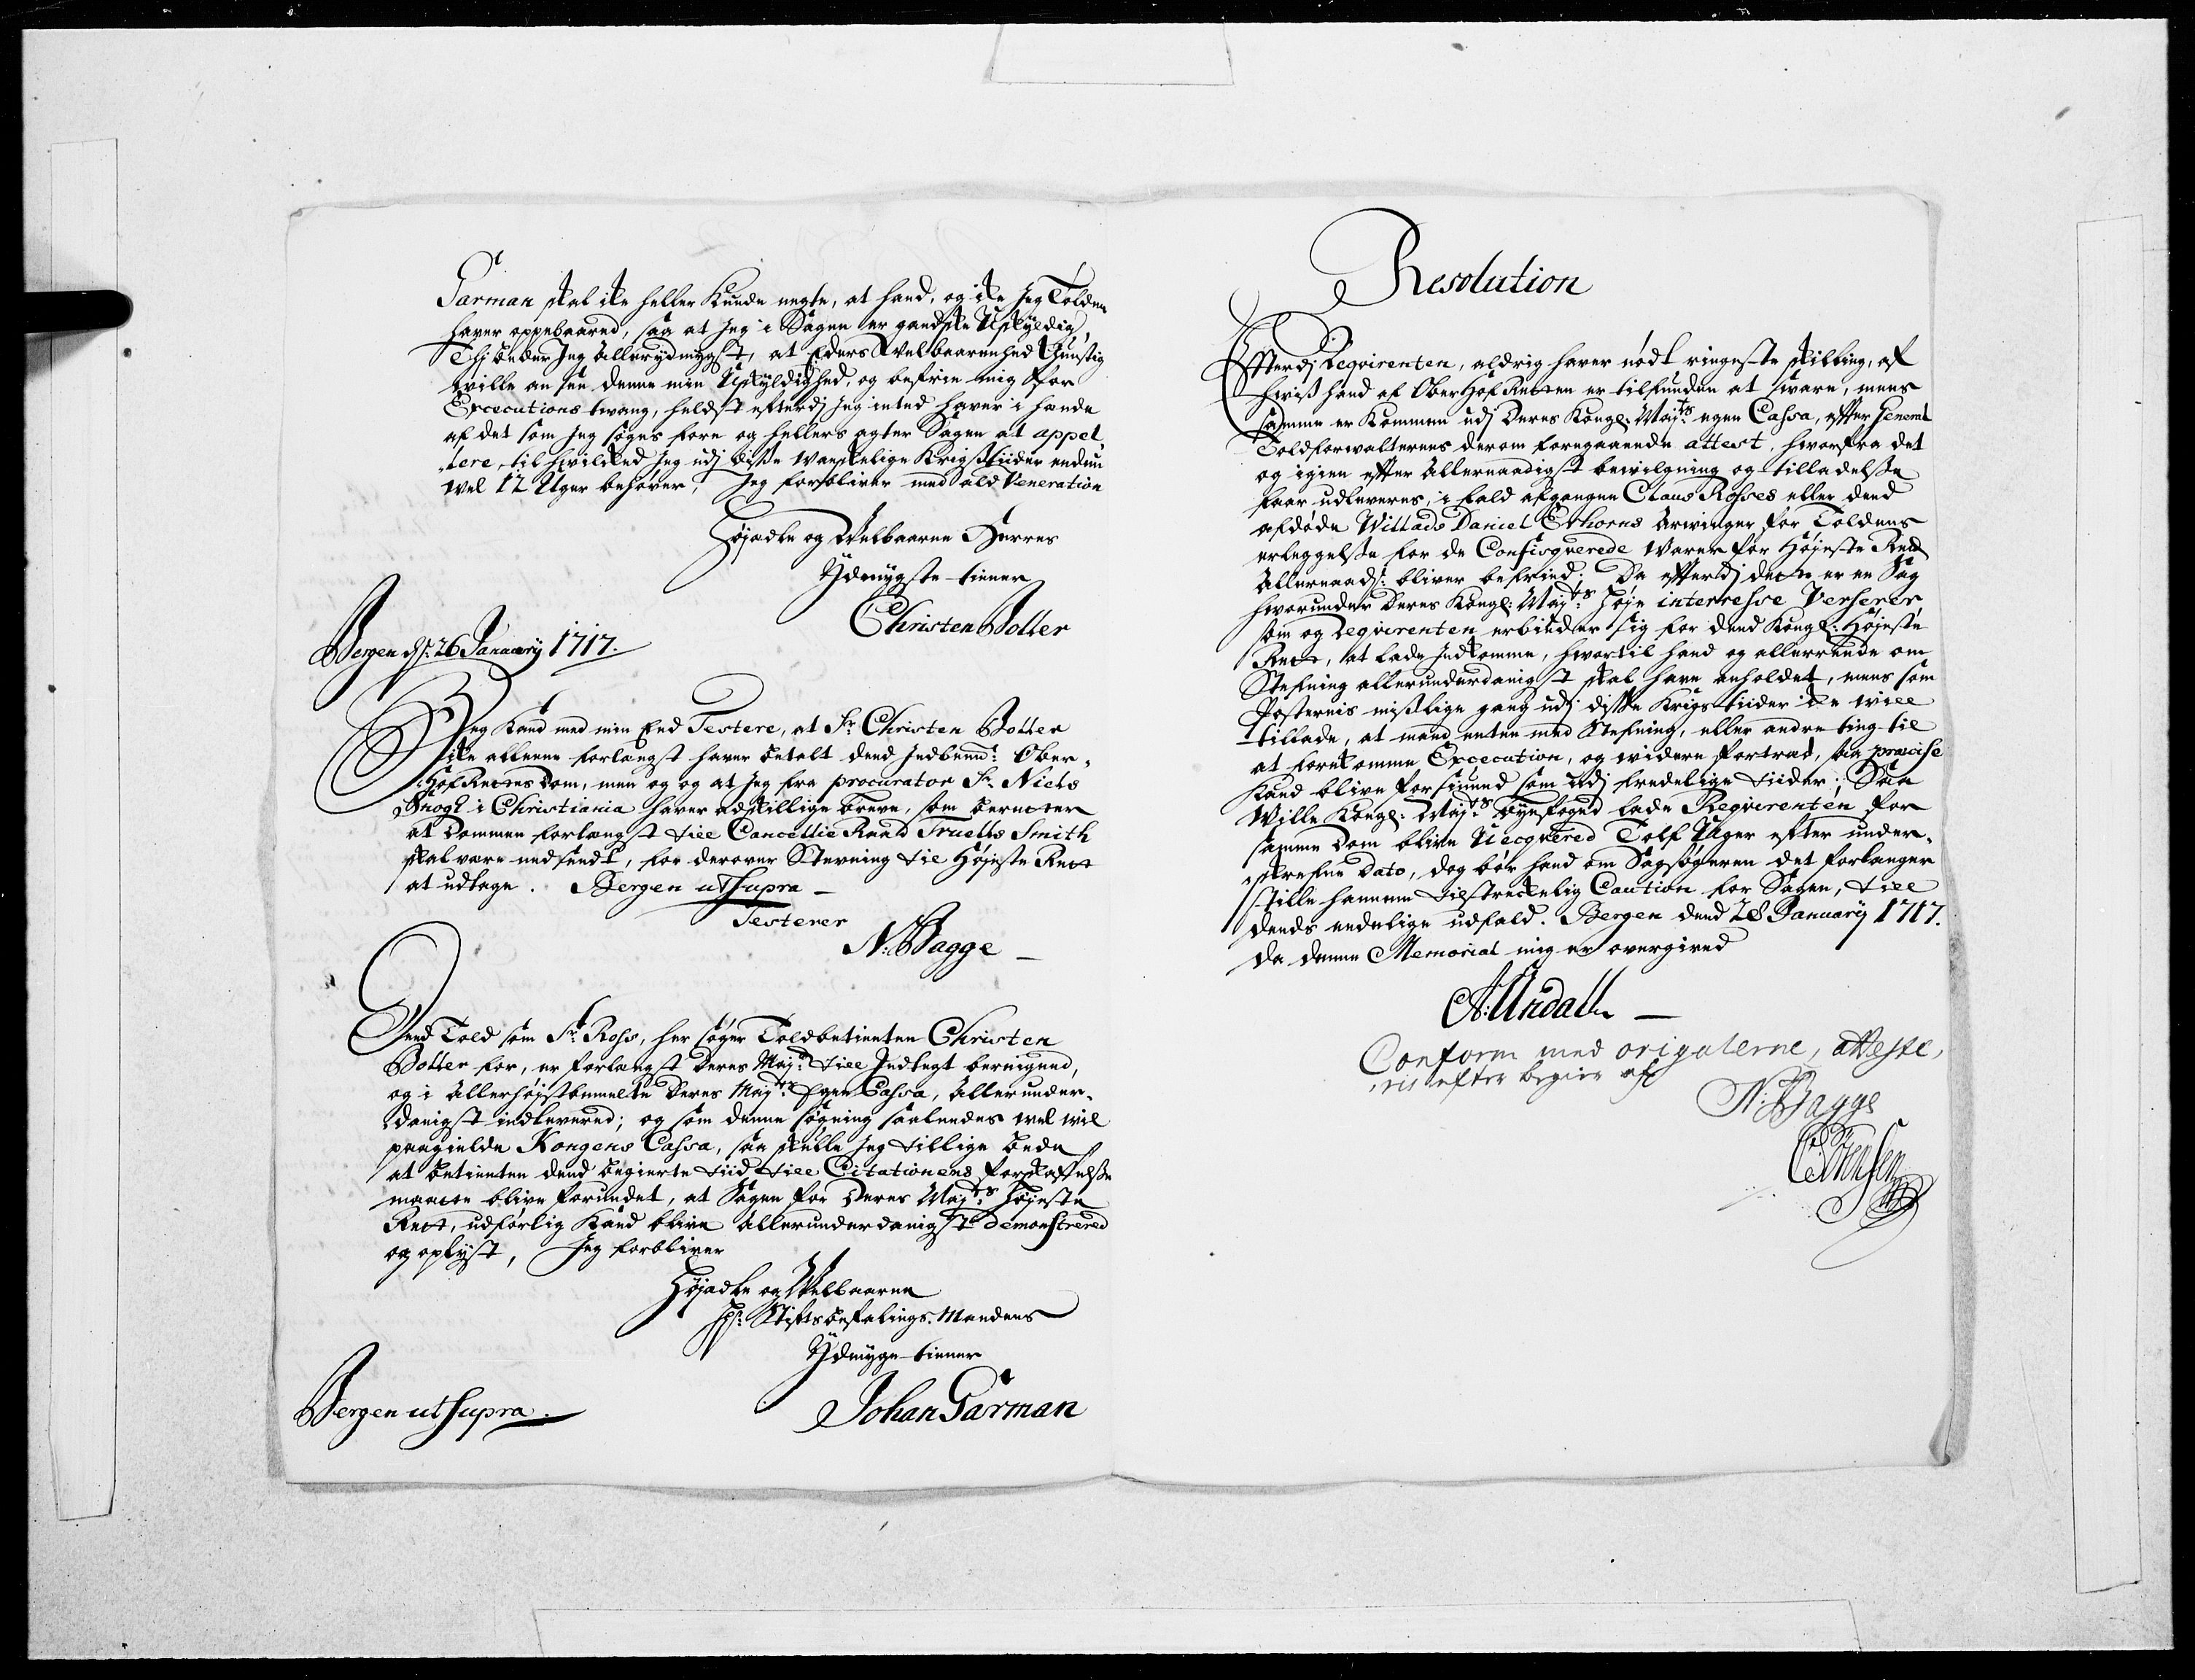 Garman skal ike heller kunde negte, at hand, og ike Jeg Tolden
haver oppebaared, saa at Jeg i Sagen er gandske Uskyldig,
Thi beder Jeg Allerydmygst, at Eders Welbaarenhed Gunstig
wille an see denne min Uskyldighed, og befrie mig for
Excecutions twang, heldst efterdj Jeg inted haver i hænde
af det som Jeg søges fore og hellers agter Sagen at appel„
„lere, til hvilked Jeg udj disse wanskelige Krigstiider endnu
wel 12 Uger behøver, Jeg forbliver med ald Veneration
Højædle og Welbaarne Herres
Ydmygste tiener
Christen Botter
Bergen d: 26 Januarij 1717.
Jeg kand med min Eed Testere, at Sr Christen Botter
ike alleene forlangst haver betalt dend Indbemt: Ober„
„Hof Rettes Dom, men og og at Jeg fra procurator Sr Niels
Snogh i Christiania haver adskillige breve, som beretter
at Dommen forlængst till Cancellie Raad Truells Smith
skal være nedsendt, for derover Stevning til Højeste Rett
at udtage. Bergen ut supra
Testerer
N: Bagge
Dend Told som Sr Ross, her søger Toldbetienten Christen
Botter for, er forlangst Deres Mayts till Indtegt beregned,
og i Allerhøjstbemelte Deres Mayts Egen Cassa, Allerunder„
danigst indlevered; og som denne søgning saaledes wel wil
paagielde Kongens Cassa, saa skulle Jeg tillige bede
at betienten dend begierte tiid till Citationens forskaffelse
maatte blive forundet, at Sagen for Deres Mayts Højeste
Rett, udførlig kand blive Allerunderdanigst demonstrered
og oplyst, Jeg forbliver
Højædle og Welbaarne
Hr: Stiftsbefalings Mandens
Ydmyge tiener
Bergen ut supra.
Johan Garman
Resolution
Efterdj Reqvirenten, aldrig haver nødt ringeste skilling, af
hvis hand af Ober Hof Retten er tilfunden at svare, mens
samme er kommen udj Deres Kongl: Mayts egen Cassa, efter General
Toldforwalternes derom foregaaende attest, hvorfra det
og igien efter Allernaadigst bewilgning og tilladelse
faar udleveres, i fald afgangne Claus Rosses eller dend
afdøde Willads Daniel Erhorns Arwinger for Toldens
erleggelse for de Confisqverede Warer for Højeste Rett
Allernaadt: bliver befried; Da efterdj dette er en Sag
hvorunder Deres Kongl: Mayts Høje interresse Verserer,
som og Reqvirenten erbieder sig for dend Kongl: Højeste
Rett, at lade Indkomme, hvortil hand og allerrede om
Stefning allerunderdanigst skal have anholdet, mens som
Posternis mislige gang udj disse Krigs tiider ike will
tillade, at mand enten med Stefning, eller andre ting til
at forekomme Excecution, og widere fortræd, saa præcise
kand blive forsiuned som udj fredelige tiider; Saa
Wille Kongl: Mayts byefoged lade Reqvirenten for
samme Dom blive Uecqvered Tolf Uger efter under„
„skrefne Dato, dog bør hand om Sagsøgeren det forlanger
stille hannem tilstreckelig Caution for Sagen, till
dends endelige udfald. Bergen dend 28 Januarij 1717.
da denne Memorial mig er overgived
A: Undall
Conform med origalerne, atteste„
„ris efter begier af
N: Bagge